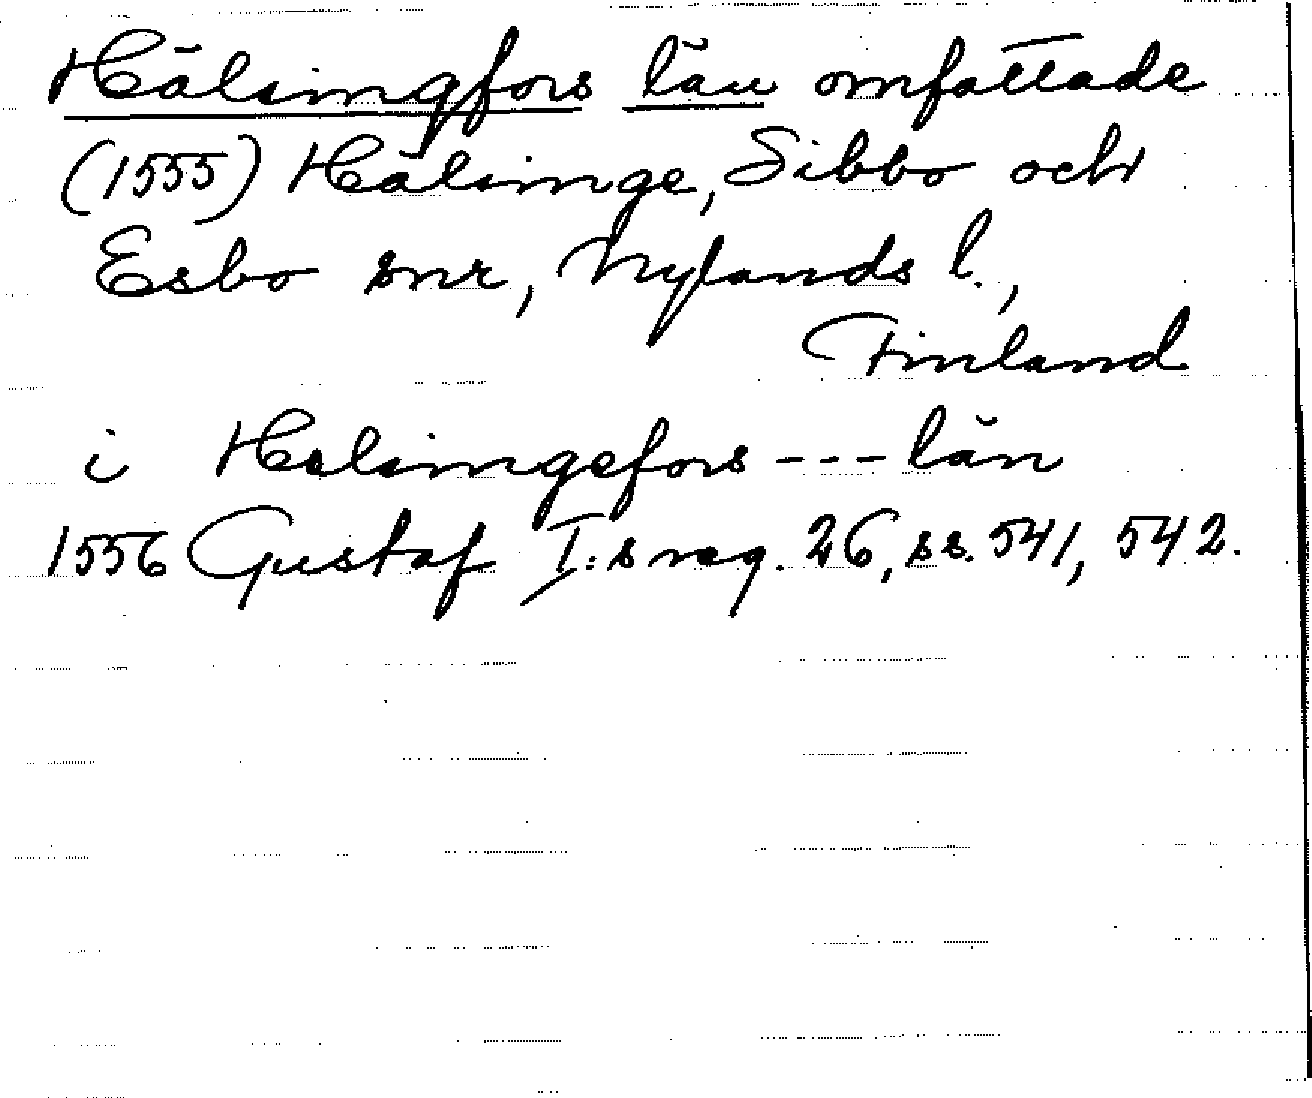 Hälsingfors län omfattade
(1555) Hälsinge, Sibbo och
Esbo snr, Nylands l.,
Finland
i Helsingefors --- län
1556 Gustaf I:s reg. 26, ss. 541, 542.